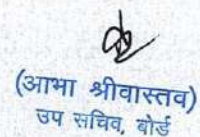 (आभा श्रीवास्तव)
उप सचिव, बोर्ड